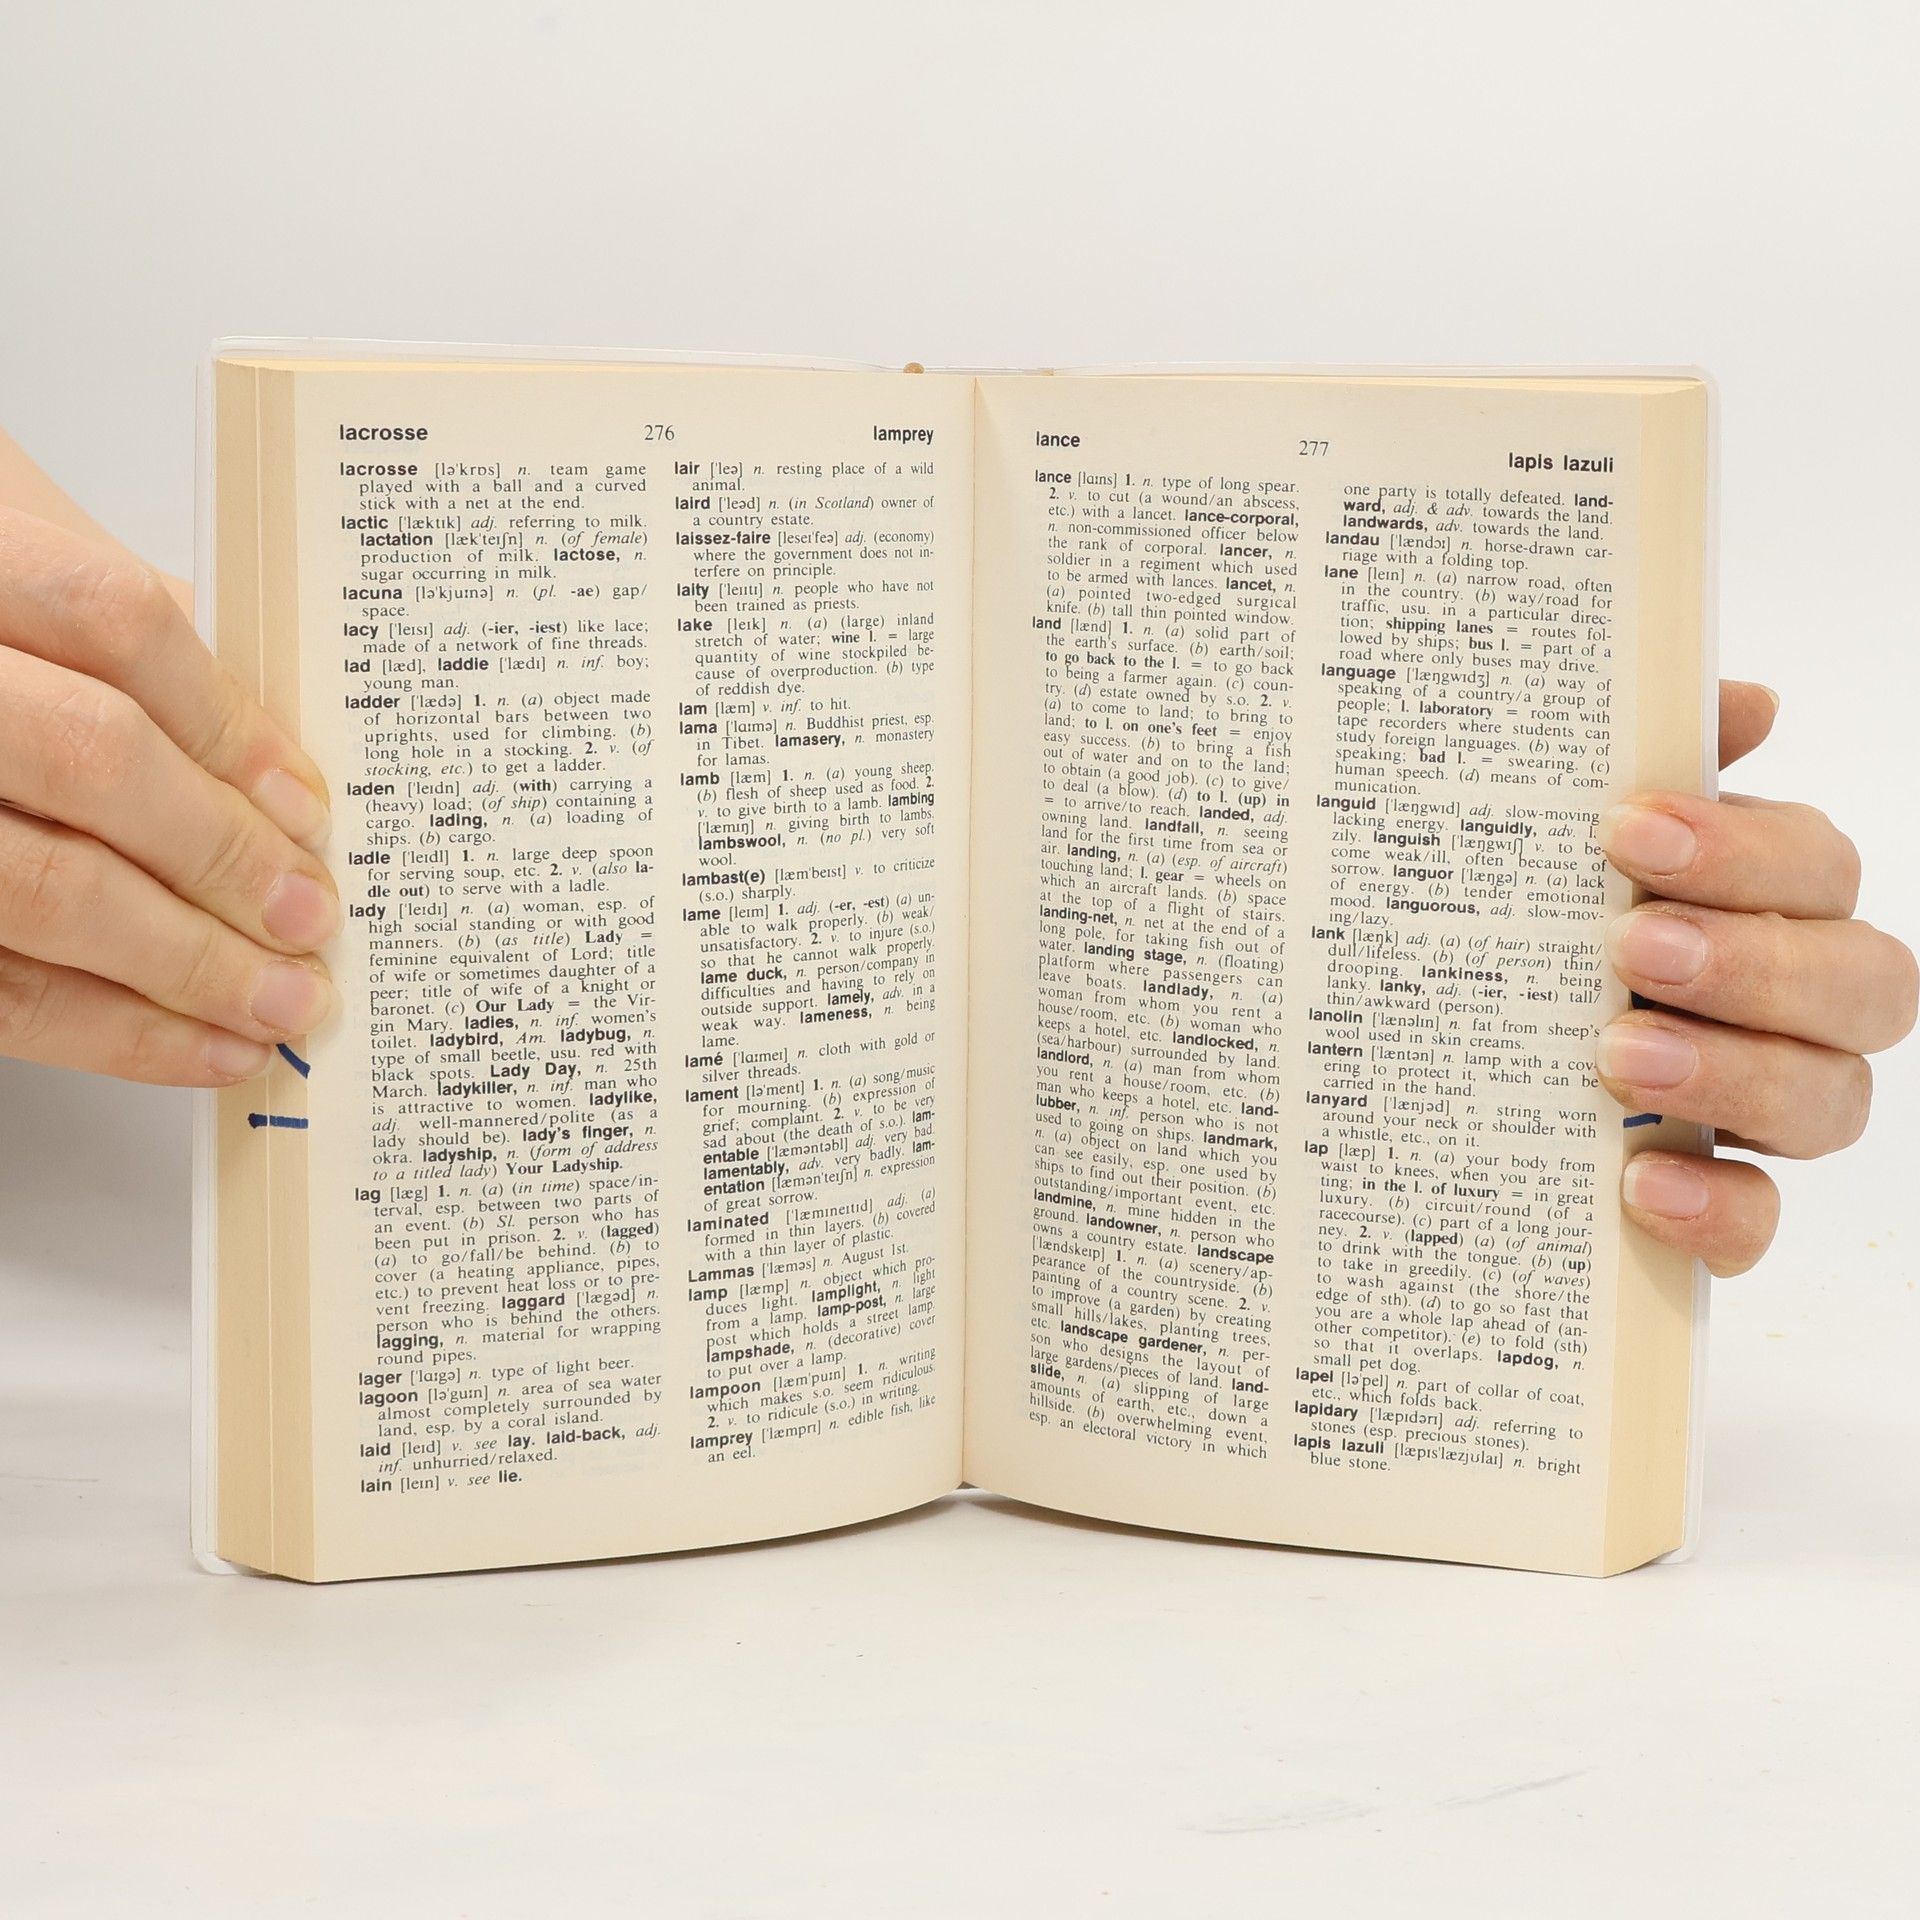 lacrosse 276 lamprey
lacrosse [ləˈkrɒs] n. team game
played with a ball and a curved
stick with a net at the end.
lactic [ˈlæktɪk] adj. referring to milk.
lactation [lækˈteɪʃn] n. (of female)
production of milk. lactose, n.
sugar occurring in milk.
lacuna [ləˈkjuːnə] n. (pl. -ae) gap/
space.
lacy [ˈleɪsɪ] adj. (-ier, -iest) like lace;
made of a network of fine threads.
lad [læd], laddie [ˈlædɪ] n. inf. boy;
young man.
ladder [ˈlædə] 1. n. (a) object made
of horizontal bars between two
uprights, used for climbing. (b)
long hole in a stocking. 2. v. (of
stocking, etc.) to get a ladder.
laden [ˈleɪdn] adj. (with) carrying a
(heavy) load; (of ship) containing a
cargo. lading, n. (a) loading of
ships. (b) cargo.
ladle [ˈleɪdl] 1. n. large deep spoon
for serving soup, etc. 2. v. (also la-
dle out) to serve with a ladle.
lady [ˈleɪdɪ] n. (a) woman, esp. of
high social standing or with good
manners. (b) (as title) Lady =
feminine equivalent of Lord; title
of wife or sometimes daughter of a
peer; title of wife of a knight or
baronet. (c) Our Lady = the Vir-
gin Mary. ladies, n. inf. women's
toilet. ladybird, Am. ladybug, n.
type of small beetle, usu. red with
black spots. Lady Day, n. 25th
March. ladykiller, n. inf. man who
is attractive to women. ladylike,
adj. well-mannered/polite (as a
lady should be). lady's finger, n.
okra. ladyship, n. (form of address
to a titled lady) Your Ladyship.
lag [læg] 1. n. (a) (in time) space/in-
terval, esp. between two parts of
an event. (b) Sl. person who has
been put in prison. 2. v. (lagged)
(a) to go/fall/be behind. (b) to
cover (a heating appliance, pipes,
etc.) to prevent heat loss or to pre-
vent freezing. laggard [ˈlægəd] n.
person who is behind the others.
lagging, n. material for wrapping
round pipes.
lager [ˈlɑːgə] n. type of light beer.
lagoon [ləˈguːn] n. area of sea water
almost completely surrounded by
land, esp. by a coral island.
laid [leɪd] v. see lay. laid-back, adj.
inf. unhurried/relaxed.
lain [leɪn] v. see lie.
lair [ˈleə] n. resting place of a wild
animal.
laird [ˈleəd] n. (in Scotland) owner of
a country estate.
laissez-faire [leseɪˈfeə] adj. (economy)
where the government does not in-
terfere on principle.
laity [ˈleɪɪtɪ] n. people who have not
been trained as priests.
lake [leɪk] n. (a) (large) inland
stretch of water; wine l. = large
quantity of wine stockpiled be-
cause of overproduction. (b) type
of reddish dye.
lam [læm] v. inf. to hit.
lama [ˈlɑːmə] n. Buddhist priest, esp.
in Tibet. lamasery, n. monastery
for lamas.
lamb [læm] 1. n. (a) young sheep.
(b) flesh of sheep used as food. 2.
v. to give birth to a lamb. lambing
[ˈlæmɪŋ] n. giving birth to lambs.
lambswool, n. (no pl.) very soft
wool.
lambast(e) [læmˈbeɪst] v. to criticize
(s.o.) sharply.
lame [leɪm] 1. adj. (-er, -est) (a) un-
able to walk properly. (b) weak/
unsatisfactory. 2. v. to injure (s.o.)
so that he cannot walk properly.
lame duck, n. person/company in
difficulties and having to rely on
outside support. lamely, adv. in a
weak way. lameness, n. being
lame.
lamé [ˈlɑːmeɪ] n. cloth with gold or
silver threads.
lament [ləˈment] 1. n. (a) song/music
for mourning. (b) expression of
grief; complaint. 2. v. to be very
sad about (the death of s.o.). lam-
entable [ˈlæməntəbl] adj. very bad.
lamentably, adv. very badly. lam-
entation [læmənˈteɪʃn] n. expression
of great sorrow.
laminated [ˈlæmɪneɪtɪd] adj. (a)
formed in thin layers. (b) covered
with a thin layer of plastic.
Lammas [ˈlæməs] n. August 1st.
lamp [læmp] n. object which pro-
duces light. lamplight, n. light
from a lamp. lamp-post, n. large
post which holds a street lamp.
lampshade, n. (decorative) cover
to put over a lamp.
lampoon [læmˈpuːn] 1. n. writing
which makes s.o. seem ridiculous.
2. v. to ridicule (s.o.) in writing.
lamprey [ˈlæmprɪ] n. edible fish, like
an eel.
lance 277 lapis lazuli
lance [lɑːns] 1. n. type of long spear.
2. v. to cut (a wound/an abscess,
etc.) with a lancet. lance-corporal,
n. non-commissioned officer below
the rank of corporal. lancer, n.
soldier in a regiment which used
to be armed with lances. lancet, n.
(a) pointed two-edged surgical
knife. (b) tall thin pointed window.
land [lænd] 1. n. (a) solid part of
the earth's surface. (b) earth/soil;
to go back to the l. = to go back
to being a farmer again. (c) coun-
try. (d) estate owned by s.o. 2. v.
(a) to come to land; to bring to
land; to l. on one's feet = enjoy
easy success. (b) to bring a fish
out of water and on to the land;
to obtain (a good job). (c) to give/
to deal (a blow). (d) to l. (up) in
= to arrive/to reach. landed, adj.
owning land. landfall, n. seeing
land for the first time from sea or
air. landing, n. (a) (esp. of aircraft)
touching land; l. gear = wheels on
which an aircraft lands. (b) space
at the top of a flight of stairs.
landing-net, n. net at the end of a
long pole, for taking fish out of
water. landing stage, n. (floating)
platform where passengers can
leave boats. landlady, n. (a)
woman from whom you rent a
house/room, etc. (b) woman who
keeps a hotel, etc. landlocked, n.
(sea/harbour) surrounded by land.
landlord, n. (a) man from whom
you rent a house/room, etc. (b)
man who keeps a hotel, etc. land-
lubber, n. inf. person who is not
used to going on ships. landmark,
n. (a) object on land which you
can see easily, esp. one used by
ships to find out their position. (b)
outstanding/important event, etc.
landmine, n. mine hidden in the
ground. landowner, n. person who
owns a country estate. landscape
[ˈlændskeɪp] 1. n. (a) scenery/ap-
pearance of the countryside. (b)
painting of a country scene. 2. v.
to improve (a garden) by creating
small hills/lakes, planting trees,
etc. landscape gardener, n. per-
son who designs the layout of
large gardens/pieces of land. land-
slide, n. (a) slipping of large
amounts of earth, etc., down a
hillside. (b) overwhelming event,
esp. an electoral victory in which
one party is totally defeated. land-
ward, adj. & adv. towards the land.
landwards, adv. towards the land.
landau [ˈlændɔː] n. horse-drawn car-
riage with a folding top.
lane [leɪn] n. (a) narrow road, often
in the country. (b) way/road for
traffic, usu. in a particular direc-
tion; shipping lanes = routes fol-
lowed by ships; bus l. = part of a
road where only buses may drive.
language [ˈlæŋgwɪdʒ] n. (a) way of
speaking of a country/a group of
people; l. laboratory = room with
tape recorders where students can
study foreign languages. (b) way of
speaking; bad l. = swearing. (c)
human speech. (d) means of com-
munication.
languid [ˈlæŋgwɪd] adj. slow-moving/
lacking energy. languidly, adv. l.
zily. languish [ˈlæŋgwɪʃ] v. to be-
come weak/ill, often because of
sorrow. languor [ˈlæŋgə] n. (a) lack
of energy. (b) tender emotional
mood. languorous, adj. slow-mov-
ing/lazy.
lank [læŋk] adj. (a) (of hair) straight/
dull/lifeless. (b) (of person) thin/
drooping. lankiness, n. being
lanky. lanky, adj. (-ier, -iest) tall/
thin/awkward (person).
lanolin [ˈlænəlɪn] n. fat from sheep's
wool used in skin creams.
lantern [ˈlæntən] n. lamp with a cov-
ering to protect it, which can be
carried in the hand.
lanyard [ˈlænjəd] n. string worn
around your neck or shoulder with
a whistle, etc., on it.
lap [læp] 1. n. (a) your body from
waist to knees, when you are sit-
ting; in the l. of luxury = in great
luxury. (b) circuit/round (of a
racecourse). (c) part of a long jour-
ney. 2. v. (lapped) (a) (of animal)
to drink with the tongue. (b) (up)
to take in greedily. (c) (of waves)
to wash against (the shore/the
edge of sth). (d) to go so fast that
you are a whole lap ahead of (an-
other competitor). (e) to fold (sth)
so that it overlaps. lapdog, n.
small pet dog.
lapel [ləˈpel] n. part of collar of coat,
etc., which folds back.
lapidary [ˈlæpɪdərɪ] adj. referring to
stones (esp. precious stones).
lapis lazuli [læpɪsˈlæzjʊlaɪ] n. bright
blue stone.